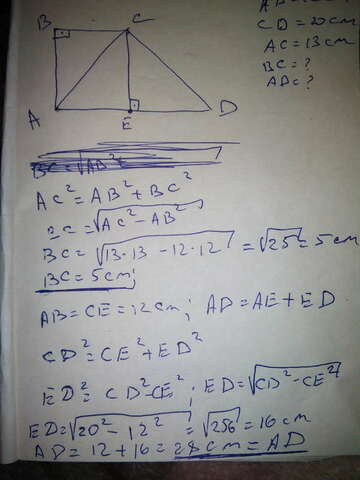 AB=
CD=20cm
AC=13cm
BC=?
AD=?
B C
A E D
BC=√AB²
AC²=AB²+BC²
BC=√AC²-AB²
BC=√13·13-12·12=√25=5cm
BC=5cm;
AB=CE=12cm; AD=AE+ED
CD²=CE²+ED²
ED²=CD²-CE²; ED=√CD²-CE²
ED=√20²-12²=√256=16cm
AD=12+16=28cm=AD